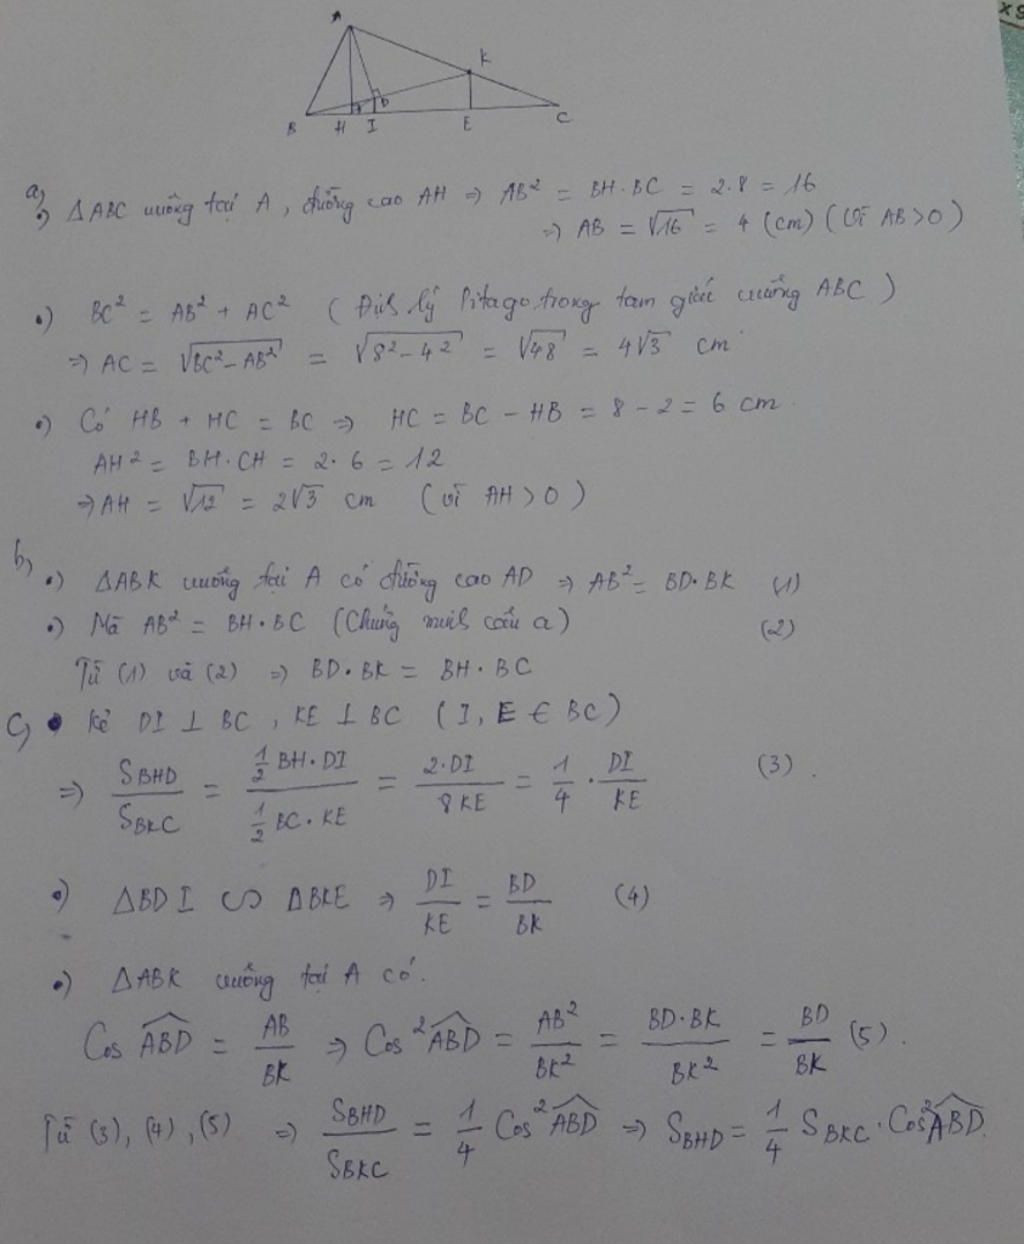 A
K
D
B H I E C
a,
.) ΔABC vuông tại A, đường cao AH ⇒ AB² = BH.BC = 2.8 = 16
⇒ AB = √16 = 4 (cm) (Vì AB>0)
.) BC² = AB² + AC² (Định lý Pitago trong tam giác vuông ABC)
⇒ AC = √(BC² - AB²) = √(8² - 4²) = √48 = 4√3 cm
.) Có HB + HC = BC ⇒ HC = BC - HB = 8 - 2 = 6 cm
AH² = BH.CH = 2.6 = 12
⇒ AH = √12 = 2√3 cm (vì AH>0)
b,
.) ΔABK vuông tại A có đường cao AD ⇒ AB² = BD.BK (1)
.) Mà AB² = BH.BC (Chứng minh câu a) (2)
Từ (1) và (2) ⇒ BD.BK = BH.BC
c, • Kẻ DI ⊥ BC, KE ⊥ BC (I, E ∈ BC)
⇒ S_BHD / S_BKC = (1/2 BH.DI) / (1/2 BC.KE) = 2.DI / 8KE = 1/4 . DI/KE (3).
.) ΔBDI ∽ ΔBKE ⇒ DI/KE = BD/BK (4)
.) ΔABK vuông tại A có.
Cos ABD = AB/BK ⇒ Cos² ABD = AB²/BK² = BD.BK/BK² = BD/BK (5).
Từ (3), (4), (5) ⇒ S_BHD / S_BKC = 1/4 Cos² ABD ⇒ S_BHD = 1/4 S_BKC . Cos² ABD.